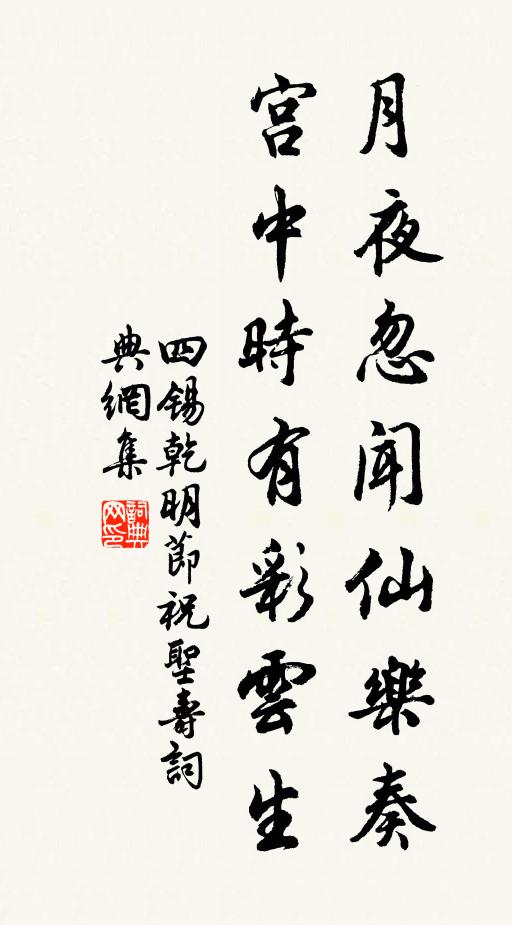 月夜忽闻仙樂奏
宫中時有彩雲生
四錫乾明節祝聖壽詞
典網集
詞典网印